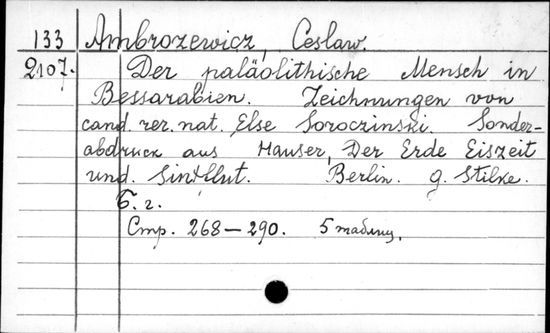 133 Ambrozewicz, Ceslaw.
2107. Der paläolithische Mensch in
Bessarabien. Zeichnungen von
cand. rer. nat. Else Soroczinski. Sonder-
abdruck aus Hauser, Der Erde Eiszeit
und. Sintflut. Berlin. G. Stilke.
Б. г.
Стр. 268—290. 5 таблиц.